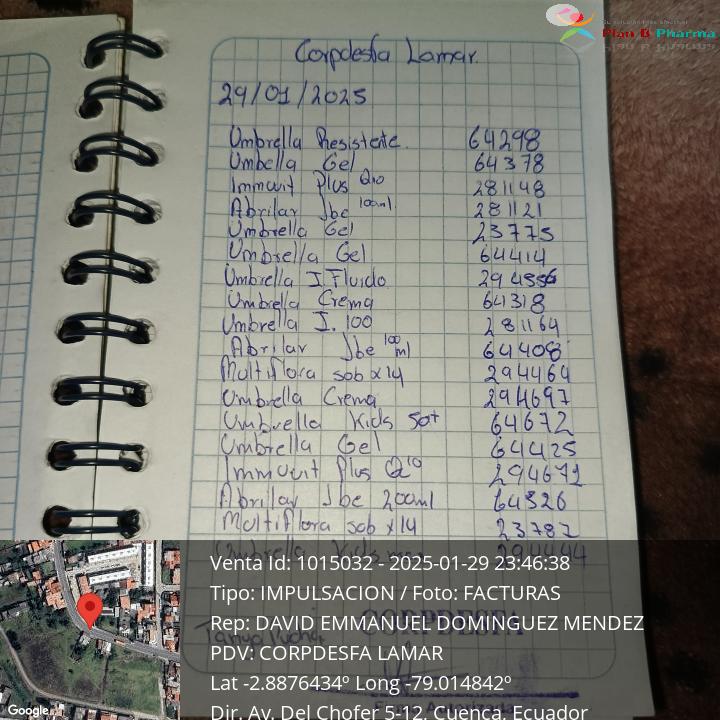 Plan B Pharma
Corpdesfa Lamar.
29/01/2025
Umbrella Resistente. 64298
Umbella Gel 64378
Immuvit Plus Q10 281148
Abrilar Jbe 100ml. 281121
Umbrella Gel 23775
Umbrella Gel 64414
Umbrella I. Fluido
Umbrella Crema 64318
Umbrella I. 100 281164
Abrilar Jbe 100 ml 64408
Multiflora sob x14 294464
Umbrella Crema 294697
Umbrella Kids 50+ 64672
Umbrella Gel 64425
Immuvit Plus Q10 294671
Abrilar Jbe 200ml 64326
Multiflora sob x14 23782
Umbrella Kids 294444
Venta Id: 1015032 - 2025-01-29 23:46:38
Tipo: IMPULSACION / Foto: FACTURAS
CORPDESFA
Rep: DAVID EMMANUEL DOMINGUEZ MENDEZ
PDV: CORPDESFA LAMAR
Lat -2.8876434º Long -79.014842º
Dir. Av. Del Chofer 5-12, Cuenca, Ecuador
Google